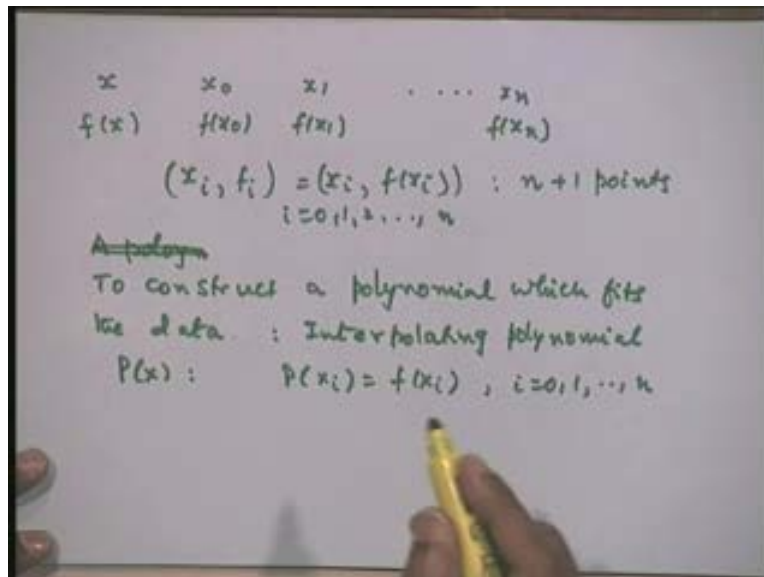 x x0 x1 . . . . xn
f(x) f(x0) f(x1) f(xn)
(xi, fi) = (xi, f(xi)) : n+1 points
i=0,1,2,..., n
A polyn
To construct a polynomial which fits
the data : Interpolating polynomial
P(x) : P(xi) = f(xi) , i=0,1,..,n